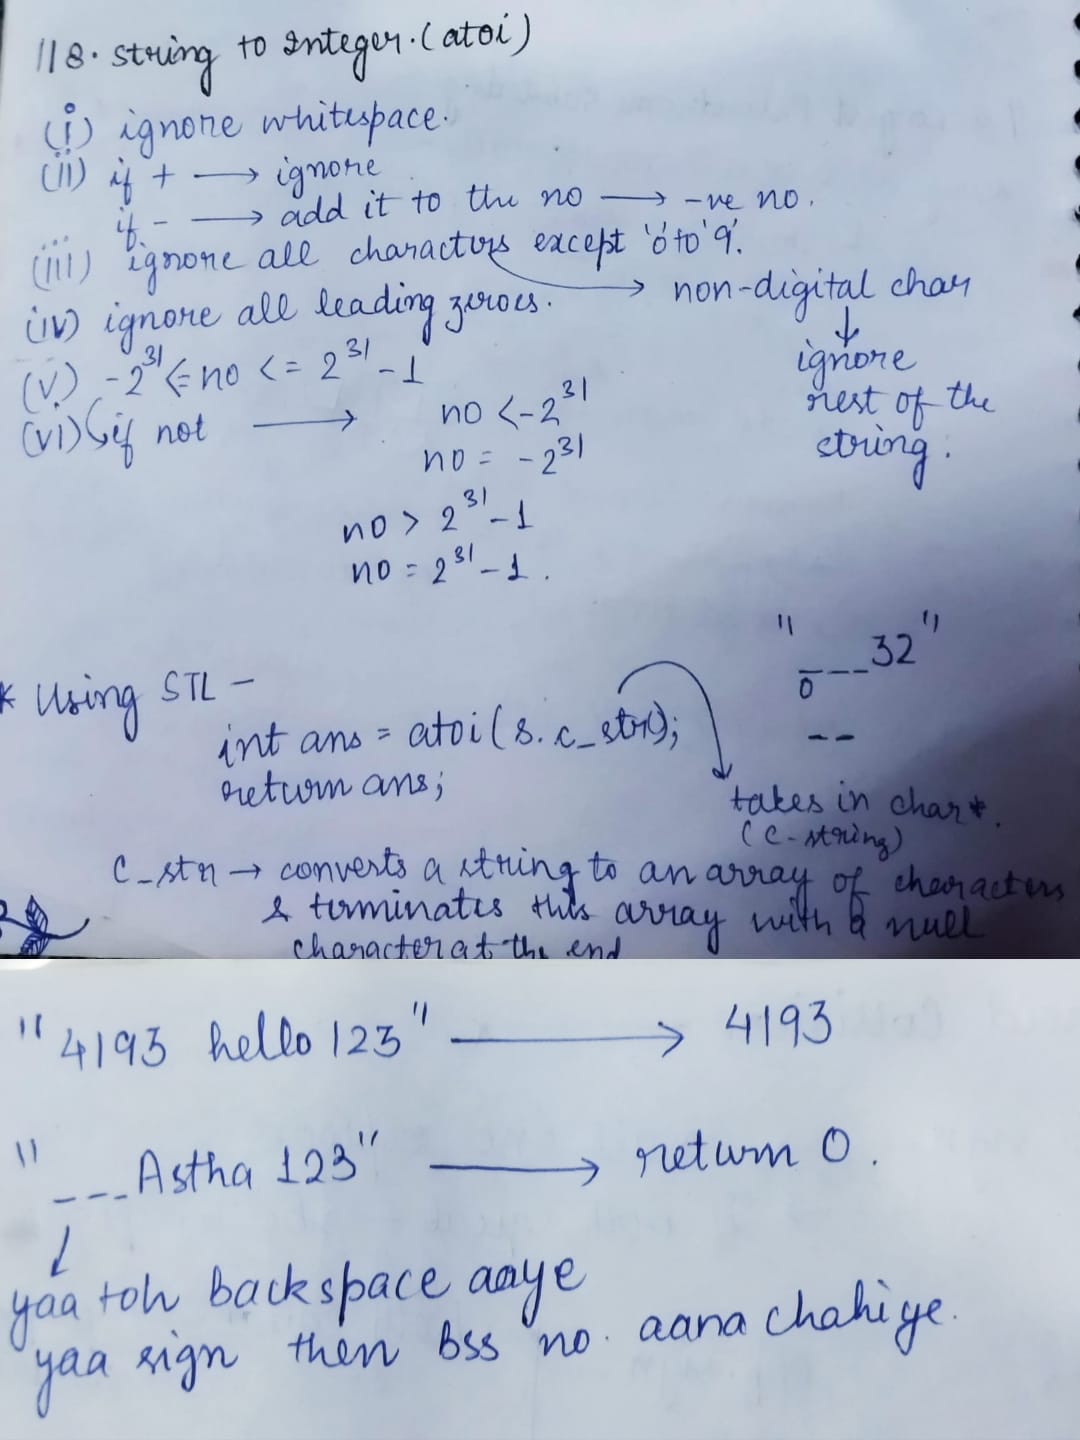 118. string to Integer. (atoi)
(i) ignore whitespace.
(ii) if + → ignore
if - → add it to the no → -ve no.
(iii) ignore all characters except '0' to '9'.
→ non-digital char
↓
ignore
rest of the
string.
(iv) ignore all leading zeroes.
(v) -2^31 <= no <= 2^31 - 1
(vi) if not → no < -2^31
no = -2^31
no > 2^31 - 1
no = 2^31 - 1.
"_ _ _ _32"
0
_ _
* Using STL -
int ans = atoi(s.c_str();
return ans;
takes in char*.
(C-string)
C_str → converts a string to an array of characters
& terminates this array with a null
character at the end
"4193 hello 123" → 4193
"_ _ _ Astha 123" → return 0.
↓
yaa toh backspace aaye
yaa sign then bss no. aana chahiye.